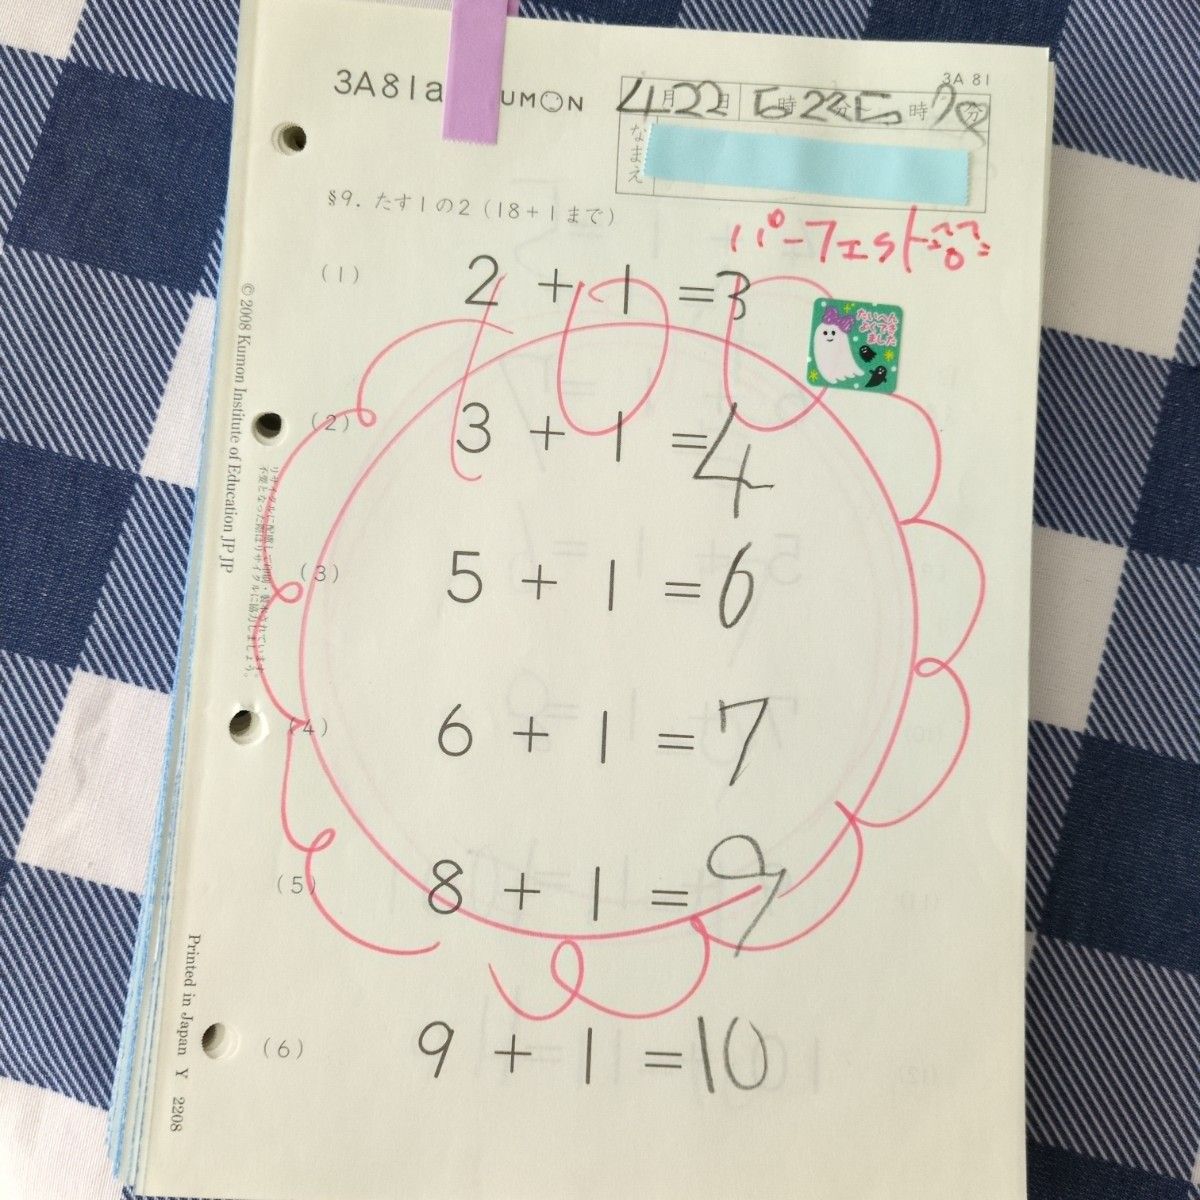 3A81a KUMON
3A 81
4月22日 5時22分 5時 分
なまえ
§9. たす1の2 (18+1まで)
パーフェクト
(1) 2 + 1 = 3
たいへん
よくでき
ました
(2) 3 + 1 = 4
(3) 5 + 1 = 6
(4) 6 + 1 = 7
(5) 8 + 1 = 9
(6) 9 + 1 = 10
© 2008 Kumon Institute of Education JP JP
不要となった際はリサイクルに協力しましょう。
Printed in Japan Y 2208